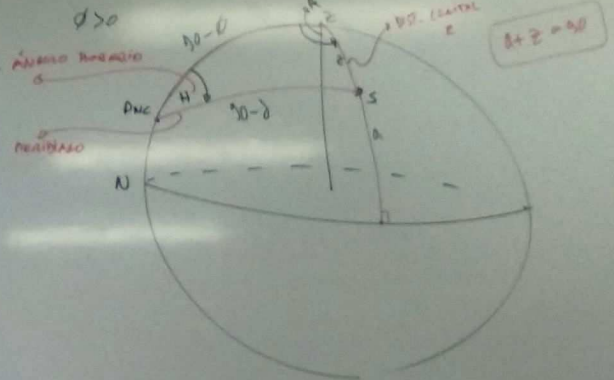 Ø>0
90-Ø
A
Z
DIST. CENITAL
z
a+z=90
ÁNGULO HORARIO
H
S
PNC
90-δ
a
MERIDIANO
N